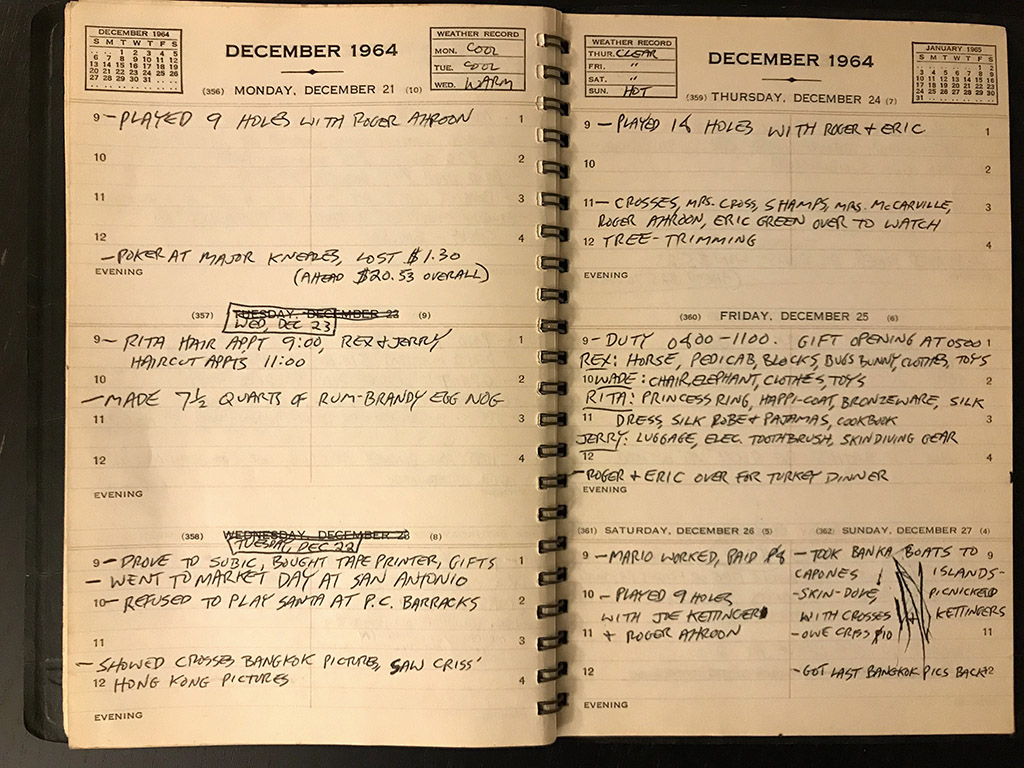 DECEMBER 1964
S M T W T F S
1 2 3 4 5
6 7 8 9 10 11 12
13 14 15 16 17 18 19
20 21 22 23 24 25 26
27 28 29 30 31
DECEMBER 1964
WEATHER RECORD
MON. COOL
TUE. COOL
WED. WARM
(356) MONDAY, DECEMBER 21 (10)
9 – PLAYED 9 HOLES WITH ROGER AHROON 1
10 2
11 3
12 4
– POKER AT MAJOR KNEALES, LOST $1.30
EVENING (AHEAD $20.53 OVERALL)
(357) TUESDAY, DECEMBER 22 (9)
WED, DEC 23
9 – RITA HAIR APPT 9:00, REX & JERRY 1
HAIRCUT APPTS 11:00
10 2
– MADE 7½ QUARTS OF RUM-BRANDY EGG NOG
11 3
12 4
EVENING
(358) WEDNESDAY, DECEMBER 23 (8)
TUESDAY, DEC 22
9 – DROVE TO SUBIC, BOUGHT TAPE PRINTER, GIFTS 1
– WENT TO MARKET DAY AT SAN ANTONIO
10 – REFUSED TO PLAY SANTA AT P.C. BARRACKS 2
11 3
– SHOWED CROSSES BANGKOK PICTURES, SAW CRISS'
12 HONG KONG PICTURES 4
EVENING
WEATHER RECORD
THUR. CLEAR
FRI. "
SAT. "
SUN. HOT
DECEMBER 1964
JANUARY 1965
S M T W T F S
1 2
3 4 5 6 7 8 9
10 11 12 13 14 15 16
17 18 19 20 21 22 23
24 25 26 27 28 29 30
31
(359) THURSDAY, DECEMBER 24 (7)
9 – PLAYED HOLES WITH ROGER & ERIC 1
10 2
11 – CROSSES, MRS. CROSS, SHAMPS, MRS. McCARVILLE, 3
ROGER AHROON, ERIC GREEN OVER TO WATCH
12 TREE-TRIMMING 4
EVENING
(360) FRIDAY, DECEMBER 25 (6)
9 – DUTY 0400-1100. GIFT OPENING AT 0500 1
REX: HORSE, PEDICAB, BLOCKS, BUGS BUNNY, CLOTHES, TOYS
10 WADE: CHAIR, ELEPHANT, CLOTHES, TOYS 2
RITA: PRINCESS RING, HAPPI-COAT, BRONZEWARE, SILK
11 DRESS, SILK ROBE & PAJAMAS, COOKBOOK 3
JERRY: LUGGAGE, ELEC. TOOTHBRUSH, SKINDIVING GEAR
12 4
– ROGER & ERIC OVER FOR TURKEY DINNER
EVENING
(361) SATURDAY, DECEMBER 26 (5)
9 – MARIO WORKED, PAID
10 – PLAYED 9 HOLES
WITH JOE KETTINGER
11 + ROGER AHROON
12
EVENING
(362) SUNDAY, DECEMBER 27 (4)
– TOOK BANKA BOATS TO 9
CAPONES ISLANDS –
– SKIN-DOVE, PICNICKED
WITH CROSSES KETTINGERS
– OWE CRISS $10 11
– GOT LAST BANGKOK PICS BACK 12